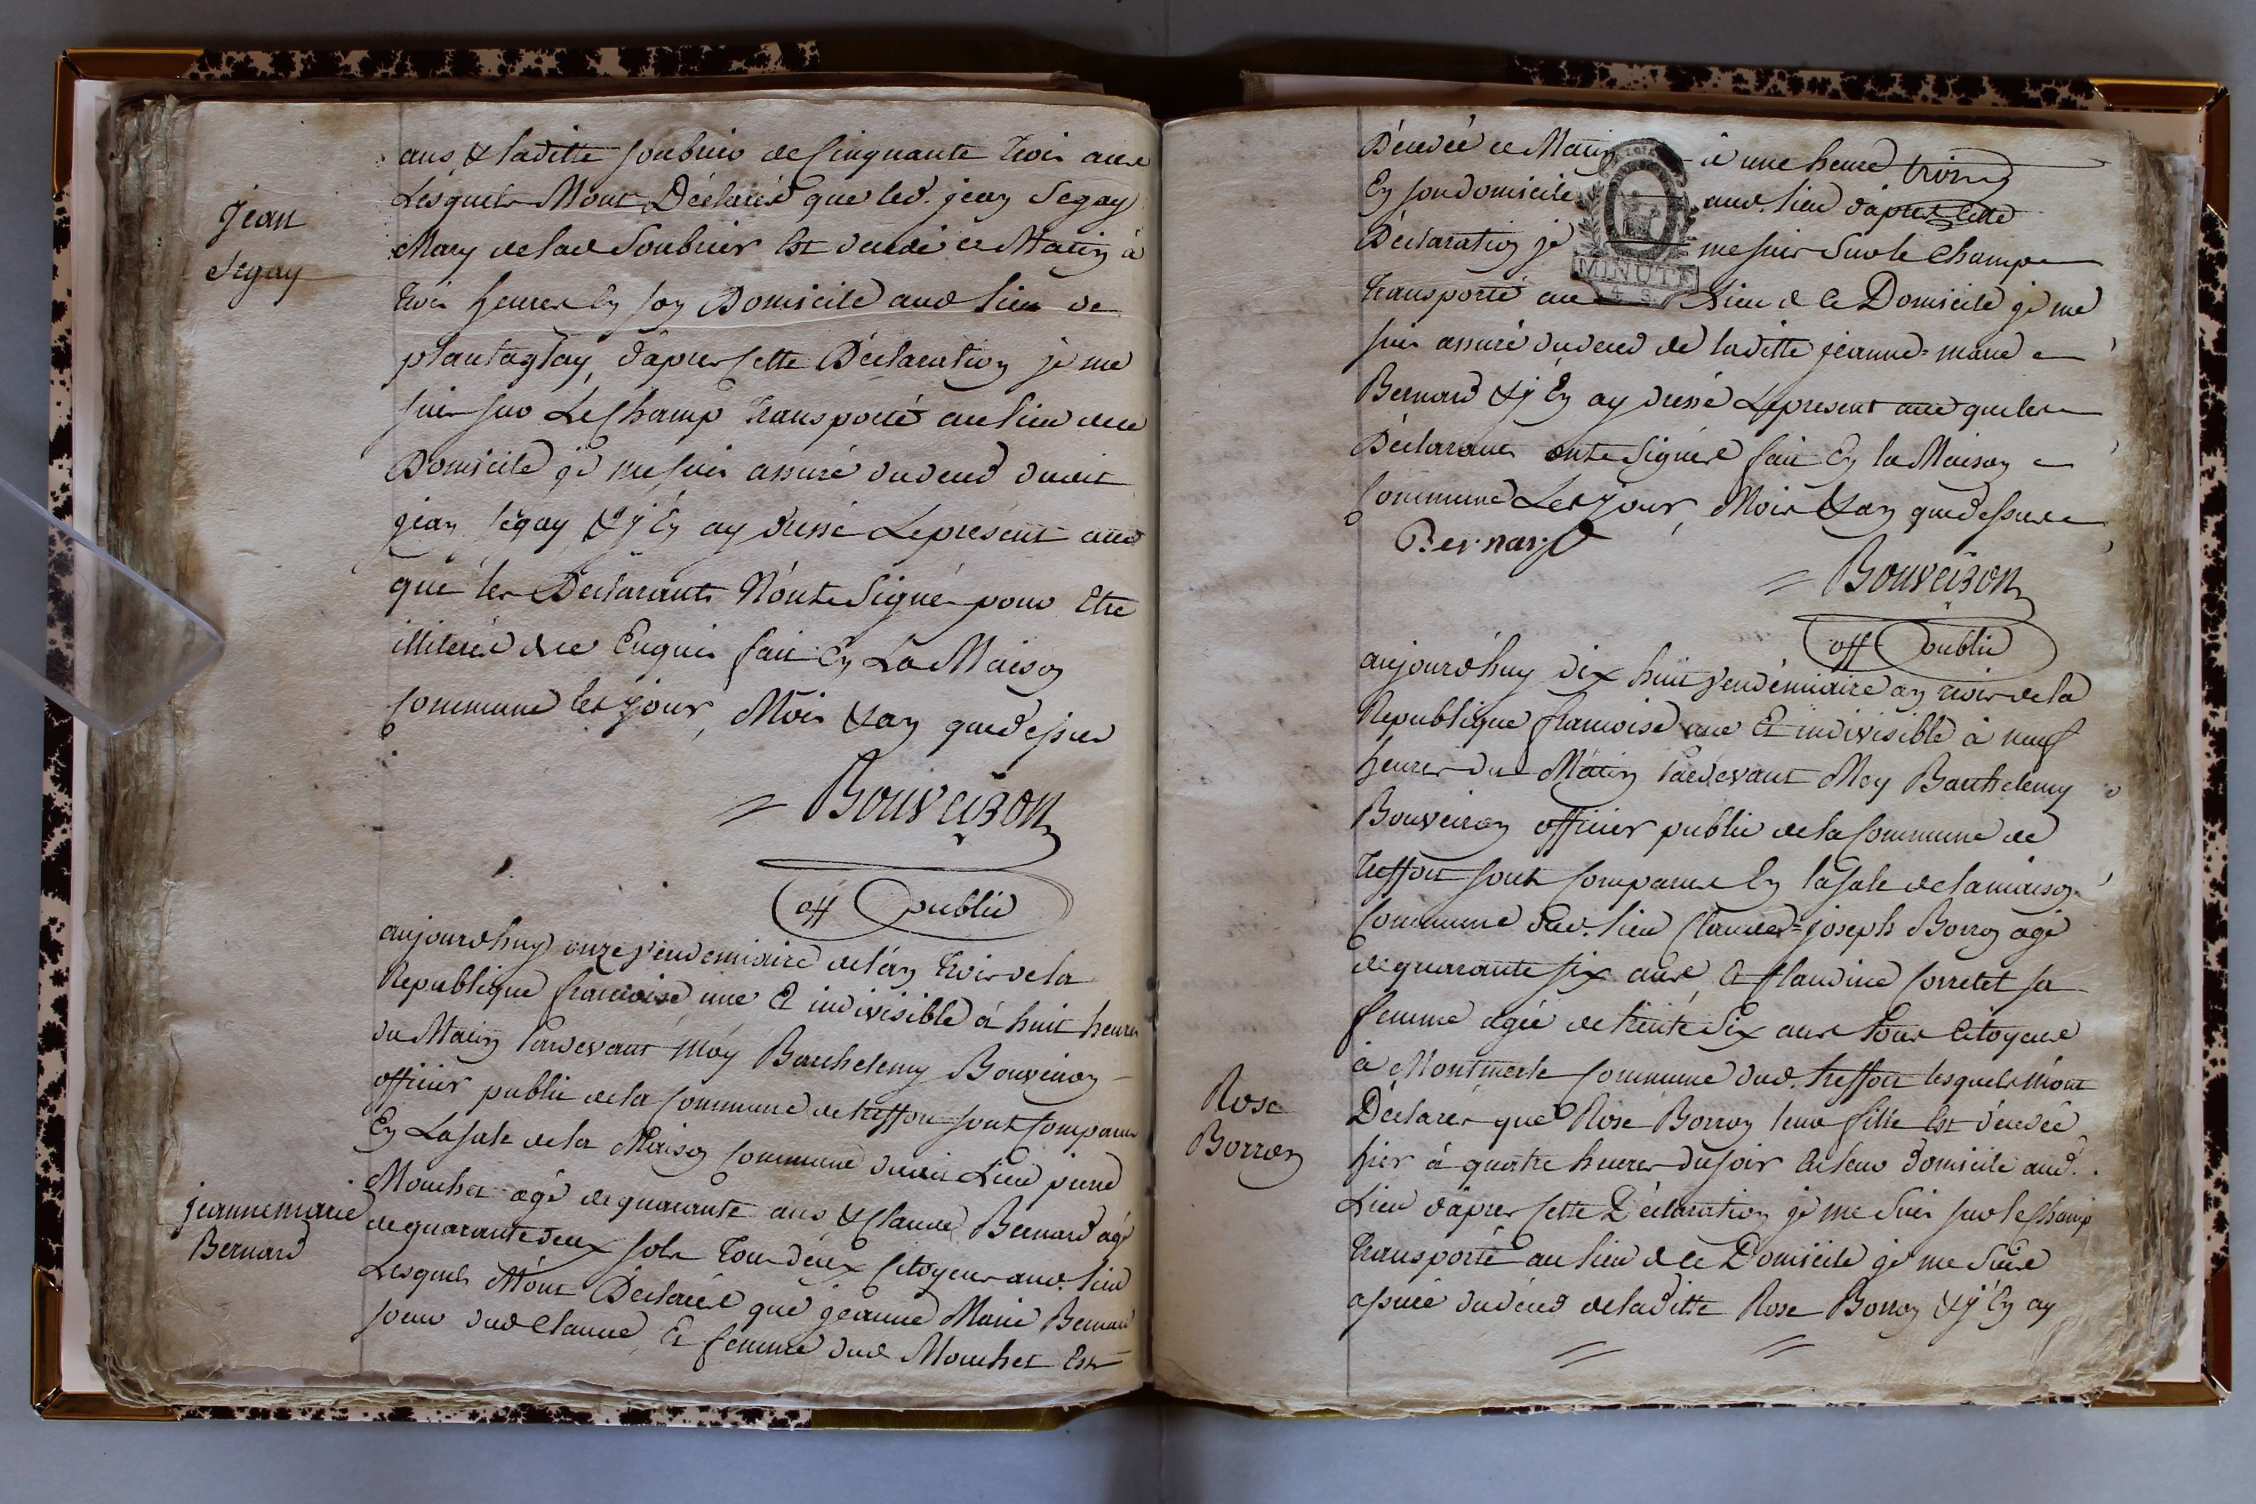 Jean
Segay
ans & laditte Soubrier de Cinquante trois ans
Lesquels M'ont Déclaréd que led. jean Segay
Mary de lad Soubrier Est décdé ce Matin à
trois heures En son Domicile aud lieu de
plantaglay, d'apres Cette Déclaration je me
suis sur Le Champ transporté au lieu de ce
Domicile je me suis assuré du déced dudit
jean Segay & j'En ay dressé Le present acte
que les Déclarants N'ont Signé pour Etre
illiteré de ce Enquis fait En La Maison
Commune les jour, Mois & an que dessus
Bouveiron
off public
jeanne marie
Bernard
aujourdhuy onze vendemiaire de l'an trois de la
Republique francoise une Et indivisible à huit heures
du Matin Pardevant Moy Barthelemy Bouveiron
officier public de la Commune de treffort sont Comparus
En La Sale de la Maison Commune dudit Lieu pierre
Mouchet agé de quarante ans & Claude Bernard agé
de quarante deux Tous deux Citoyens aud. lieu
Lesquels M'ont Déclaréd que jeanne Marie Bernard
soeur dud Claude Et femme dud Mouchet Est
Décedée ce Matin à une heure
En son domicile aud. lieu d'apres Cette
Déclaration je me suis Sur le Champ
transporté au Lieu de ce Domicile je me
suis assuré du déced de laditte jeanne=marie
Bernard & j'En ay dressé Le present acte que les
Déclarants ont Signéd fait En la Maison
Commune Les jour, Mois & an que dessus
MINUTE
4 S.
Bernard
Bouveiron
off public
Rose
Borron
aujourdhuy dix huit vendémiaire an trois de la
Republique francoise une Et indivisible à neuf
heures du Matin Pardevant Moy Barthelemy
Bouveiron officier public de la Commune de
treffort sont Comparus En la Sale de la maison
Commune dud. lieu Claude=joseph Borron agé
de quarante six ans Et Claudine Corretet sa
femme agée de trente Six ans Tous Citoyens
à Montmerle Commune dud. treffort lesquels m'ont
Déclarés que Rose Borron leur fille Est décedée
hier à quatre heures du soir En leur domicile aud.
Lieu d'apres Cette Déclaration je me Suis sur le Champ
transporté au lieu de ce Domicile je me Suis
assuré du déced de laditte Rose Borron & j'En ay